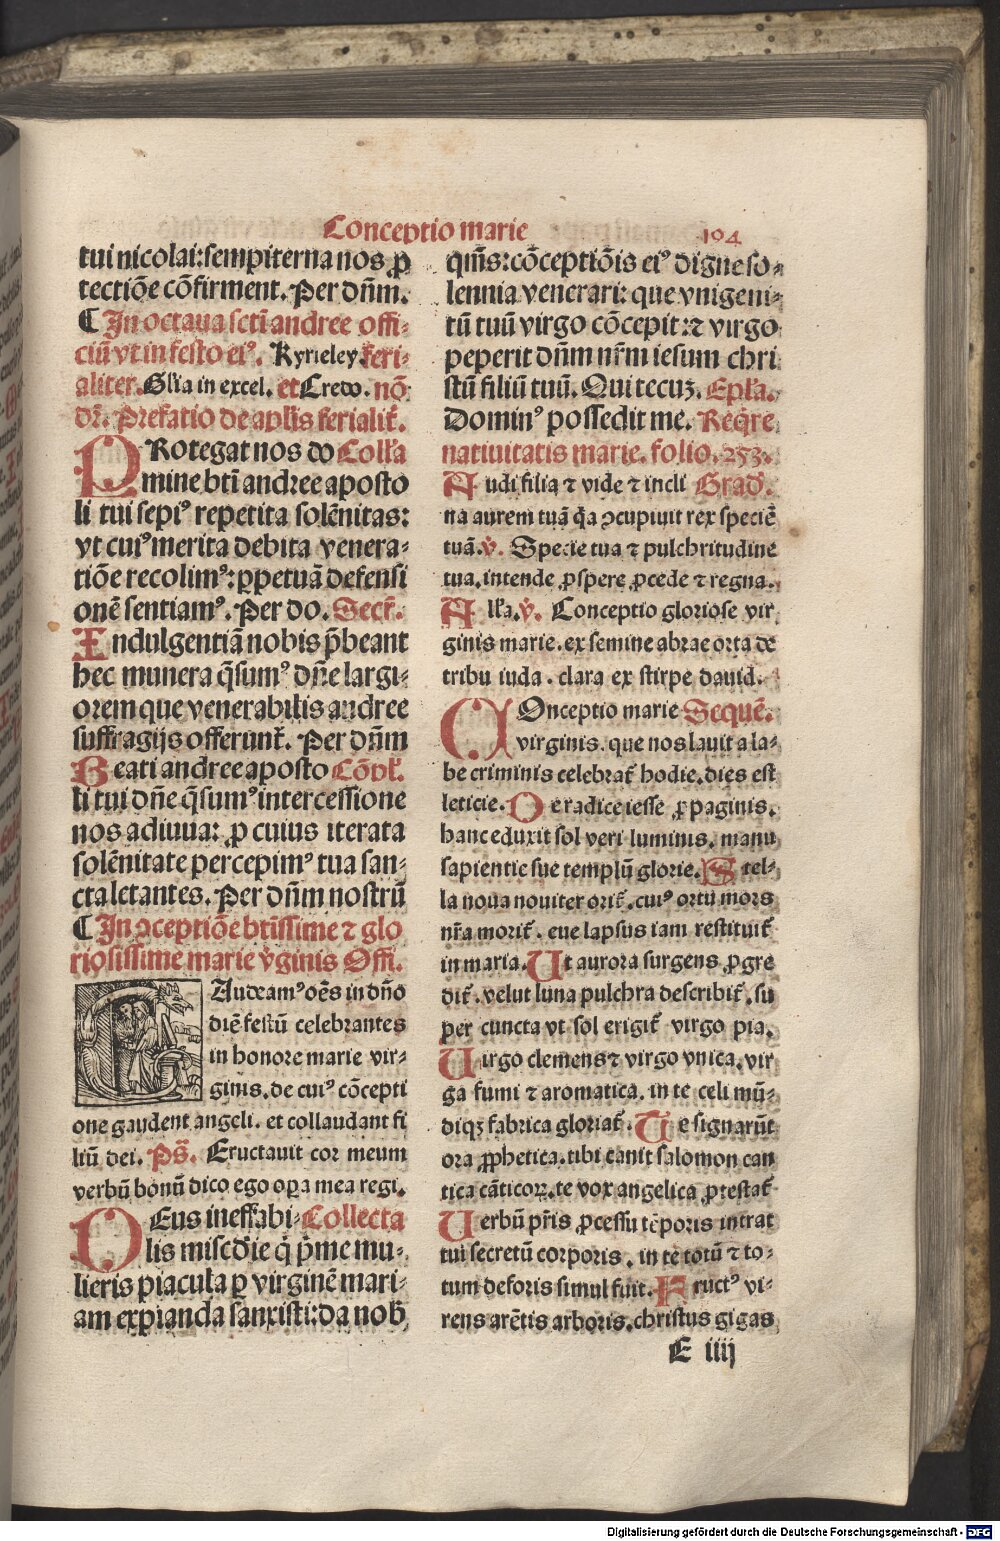 Conceptio marie 194
tui nicolai: sempiterna nos ꝓ
tectiōe cōfirment. Per dn̄m.
¶ In octaua sctī andree offi⸗
ciū vt in festo eiꝰ. Kyrieley. feri⸗
aliter. Gl'ia in excel. et Credo. nō
dr̄. Prefatio de apl'is ferialit̄.
PRotegat nos do Coll'a
mine btī andree aposto
li tui sepiꝰ repetita solēnitas:
vt cuiꝰ merita debita venera⸗
tiōe recolimꝰ: ꝑpetuā defensi
onē sentiamꝰ. Per do. Secr̄.
Indulgentiā nobis p̄beant
hec munera q̄sumꝰ dn̄e largi⸗
orem que venerabilis andree
suffragijs offerunt̄. Per dn̄m
Beati andree aposto Cōpl'.
li tui dn̄e q̄sumꝰ intercessione
nos adiuua: ꝓ cuius iterata
solēnitate percepimꝰ tua san⸗
cta letantes. Per dn̄m nostrū
¶ In ꝯceptiōe btīssime ⁊ glo
riosissime marie v̄ginis Offi.
GAudeamꝰ oēs in dn̄o
diē festū celebrantes
in honore marie vir⸗
ginis. de cuiꝰ cōcepti
one gaudent angeli. et collaudant fi
liū dei. Ps̄. Eructauit cor meum
verbū bonū dico ego oꝑa mea regi.
DEus ineffabi⸗ Collecta
lis misc̄die q̄ p̄me mu⸗
lieris piacula ꝑ virginē mari⸗
am expianda sanxisti: da nob̄
qm̄s: cōceptiōis eiꝰ digne so⸗
lennia venerari: que vnigeni⸗
tū tuū virgo cōcepit: ⁊ virgo
peperit dn̄m nr̄m iesum chri
stū filiū tuū. Qui tecuꝫ. Epl'a.
Dominꝰ possedit me. Reqͥre
natiuitatis marie. folio. 253.
Audi filia ⁊ vide ⁊ incli Grad̄.
na aurem tuā q̄a ꝯcupiuit rex speciē
tuā. v̄. Specie tua ⁊ pulchritudine
tua. intende ꝓspere ꝓcede ⁊ regna.
All'a. v̄. Conceptio gloriose vir
ginis marie. ex semine abrae orta de
tribu iuda. clara ex stirpe dauid.
COnceptio marie Sequē.
virginis. que nos lauit a la⸗
be criminis celebrat̄ hodie. dies est
leticie. De radice iesse ꝓpaginis.
hanc eduxit sol veri luminis. manu
sapientie sue templū glorie. Stel⸗
la noua nouiter orit̄. cuiꝰ ortu mors
nr̄a morit̄. eue lapsus iam restituit̄
in maria. Ut aurora surgens ꝓgre
dit̄. velut luna pulchra describit̄. su
per cuncta vt sol erigit̄ virgo pia.
Uirgo clemens ⁊ virgo vnica. vir
ga fumi ⁊ aromatica. in te celi mū⸗
diqꝫ fabrica gloriat̄. Te signarūt
ora ꝓphetica. tibi canit salomon can
tica cāticoꝝ. te vox angelica ꝓtestat̄
Uerbū pr̄is ꝓcessu tēporis intrat
tui secretū corporis. in te totū ⁊ to⸗
tum deforis simul fuit. Fructꝰ vi⸗
rens arētis arboris. christus gigas
E iiij
Digitalisierung gefördert durch die Deutsche Forschungsgemeinschaft - DFG